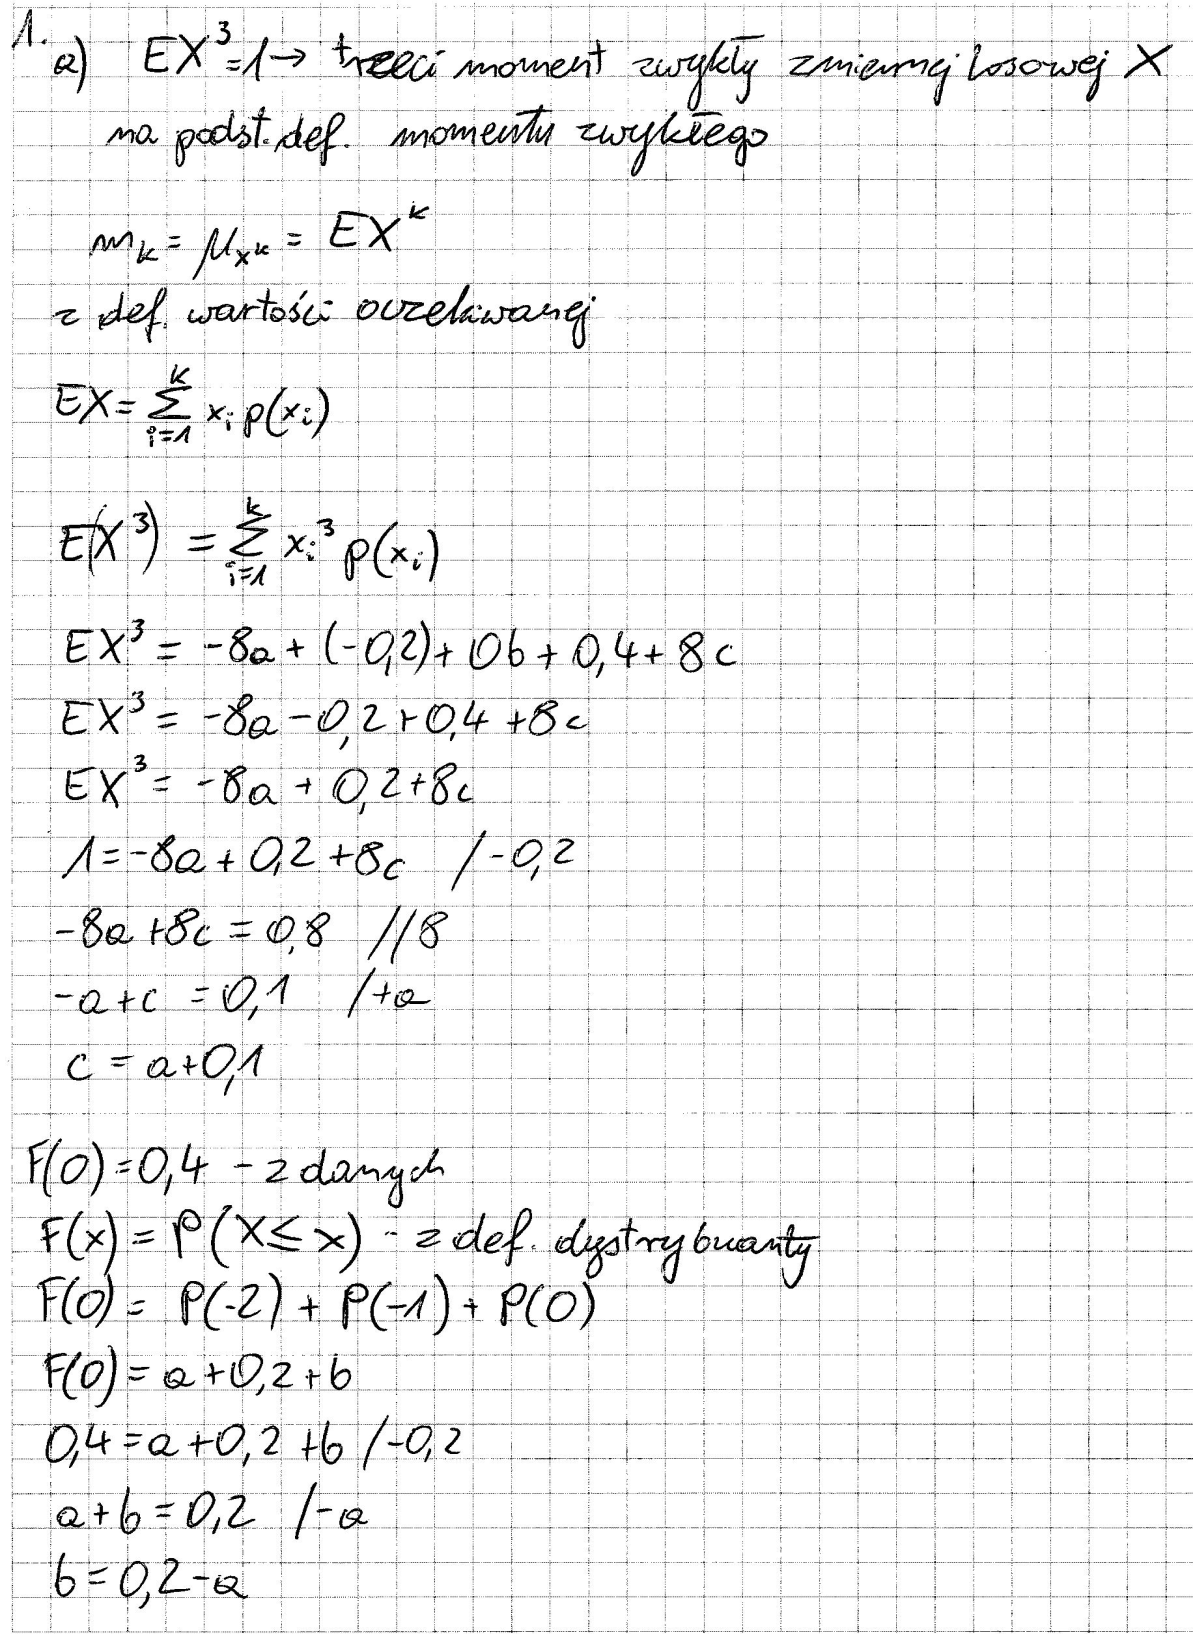 1.
a) EX³=1→ trzeci moment zwykły zmiennej losowej X
na podst. def. momentu zwykłego
m_k = μ_{x^k} = EX^k
z def. wartości oczekiwanej
EX = \sum_{i=1}^{k} x_i p(x_i)
E(X³) = \sum_{i=1}^{k} x_i³ p(x_i)
EX³ = -8a + (-0,2) + 0b + 0,4 + 8c
EX³ = -8a - 0,2 + 0,4 + 8c
EX³ = -8a + 0,2 + 8c
1 = -8a + 0,2 + 8c /-0,2
-8a + 8c = 0,8 //8
-a + c = 0,1 /+a
c = a + 0,1
F(0) = 0,4 - z danych
F(x) = P(X ≤ x) - z def. dystrybuanty
F(0) = P(-2) + P(-1) + P(0)
F(0) = a + 0,2 + b
0,4 = a + 0,2 + b /-0,2
a + b = 0,2 /-a
b = 0,2 - a